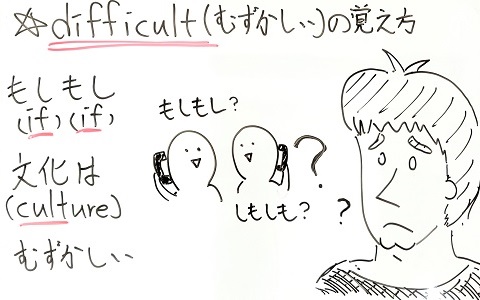 ☆difficult(むずかしい)の覚え方
もしもし
(if)(if)
文化は
(culture)
むずかしい
もしもし?
しもしも?
?
?